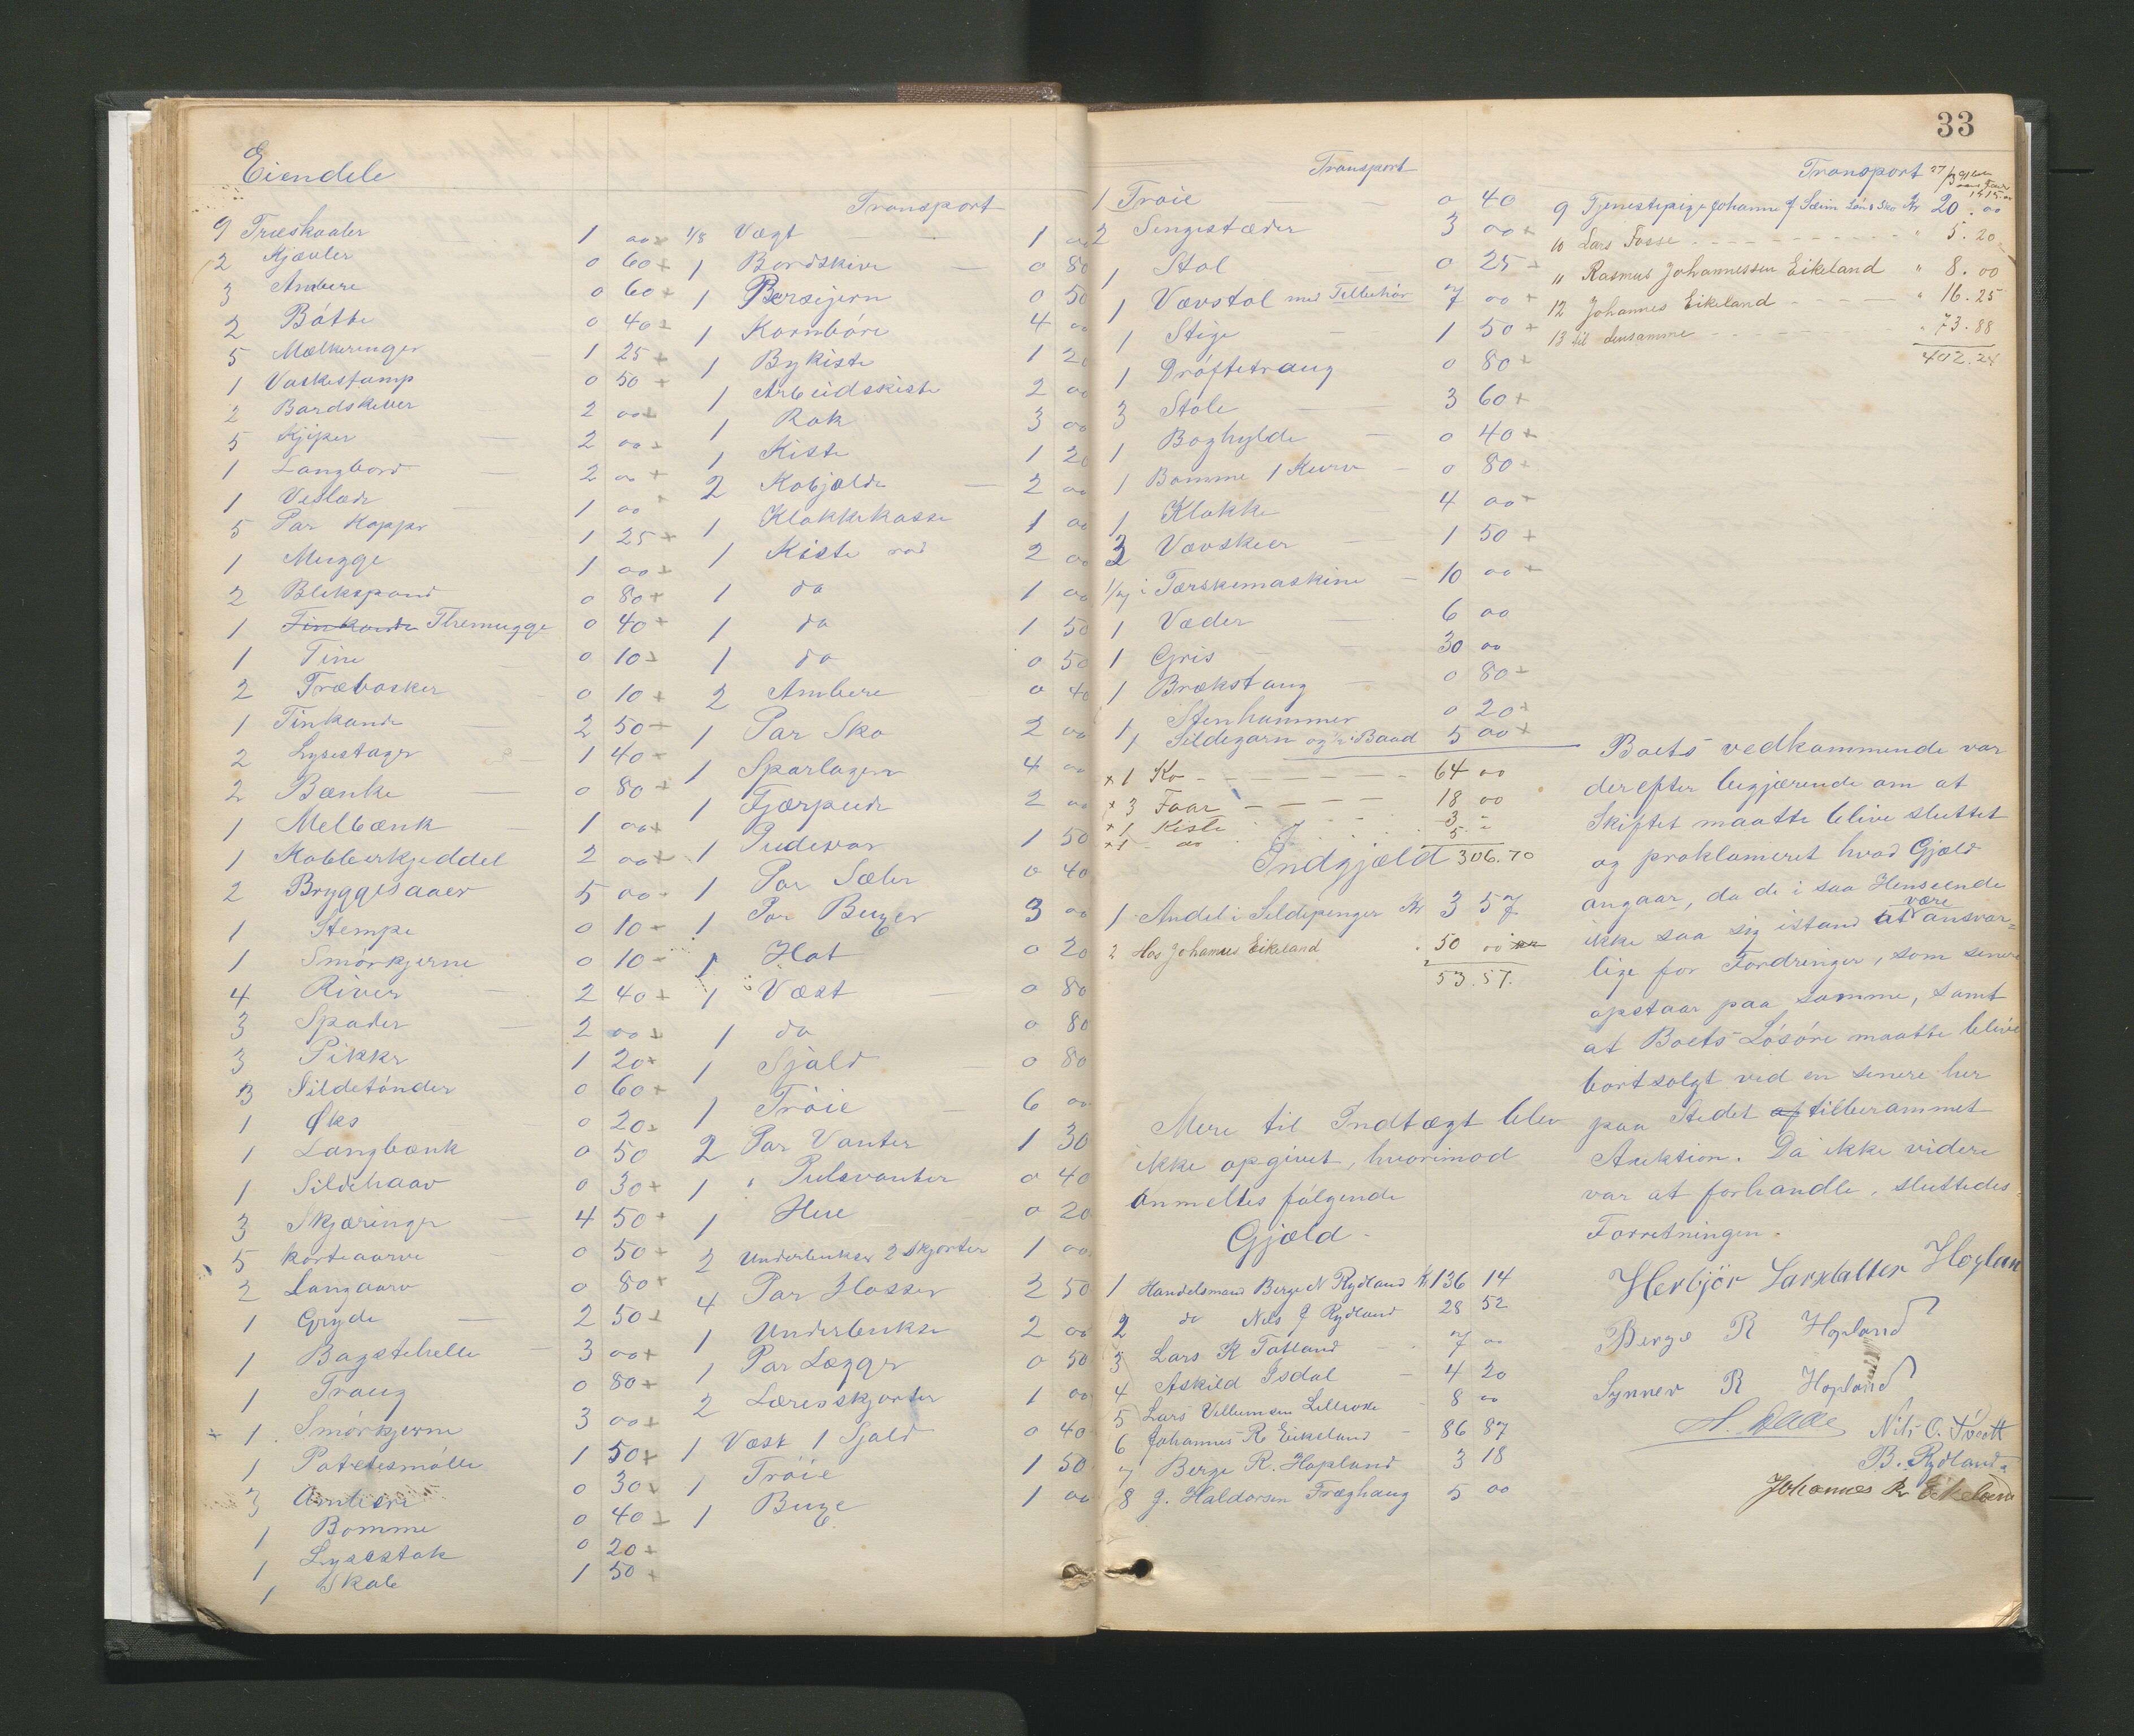 Eiendele
9 Træskaaler 1 00 +
2 Kjævler 0 60 +
3 Ambere 0 60 +
2 Bøtte 0 40 +
5 Mælkeringer 1 25 +
1 Vaskestamp 0 50 +
2 Bordskiver 2 00 +
5 Kjiper 2 00 +
1 Langbord 2 00 +
1 1 00 +
5 Par Kopper 1 25 +
1 Mugge 1 00 +
2 Blikspand 0 80 +
1 Themugge 0 40 +
1 Tine 0 10 +
2 Træbasker 0 10 +
1 Tinkande 2 50 +
2 Lysestager 1 40 +
2 Bænke 0 80 +
1 Melbænk 1 00 +
1 Kobberkjeddel 2 00 +
2 Bryggesaaer 5 00
1 Stempe 0 10 +
1 Smørkjerne 0 10 +
4 River 2 40 +
3 Spader 2 00 +
3 Pikker 1 20 +
3 Sildetønder 0 60 +
1 Øks 0 20 +
1 Langbænk 0 50
1 Sildehaav 0 30 +
3 Skjæringer 4 50 +
5 korteaarve 0 50 +
2 Langaarv 0 80 +
1 Gryde 2 50 +
1 Bagstehelle 3 00 +
1 Traug 0 80 +
+ 1 Smørkjerne 3 00 +
1 Potetesmølle 1 50 +
3 Ambere 0 30 +
1 Bomme 0 40 +
1 Lysestok 0 20 +
1 Skab 1 50 +
Transport
1/8 Vægt 1 00
1 Bordskive 0 80
1 0 50
1 Kornbøre 4 00
1 Bykiste 1 20
1 Arbeidskiste 2 00
1 Rok 3 00
1 Kiste 1 20
2 Kobjælde 2 00
1 Klokkekasse 1 00
1 Kiste rød 2 00
1 do 1 00
1 do 1 50
1 do 0 50
2 Ambere 0 40
1 Par Sko 2 00
1 Sparlagen 4 00
1 Fjærpude 2 00
1 Pudevar 1 50
1 Par Sæler 0 40
1 Par Buxer 3 00
1 Hat 0 20
1 Væst 0 80
1 do 0 80
1 Sjald 0 80
1 Trøie 6 00
2 Par Vanter 1 30
1 " Pulsvanter 0 40
1 Hue 0 20
2 Underbukser 2 Skjorter 1 00
4 Par Hosser 2 50
1 Underbukse 2 00
1 Par Lægger 0 50
2 Læresskjorter 1 00
1 Væst 1 Sjald 0 40
1 Trøie 1 50
1 Buxe 1 00
33
Transport
1 Trøie 0 40
2 Sengestæder 3 00 +
1 Stol 0 25 +
1 Vævstol med Tilbehør 7 00 +
1 Stige 1 50 +
1 Drøftetraug 0 80 +
3 Stole 3 60 +
1 Boghylde 0 40 +
1 Bomme 1 Kurv 0 80 +
1 Klokke 4 00 +
3 Vævskeer 1 50 +
i Tærskemaskine 10 00 +
1 Væder 6 00
1 Gris 30 00
1 Brækstang 0 80 +
1 Stenhammer 0 20 +
1 Sildegarn og i Baad 5 00 +
+ 1 Ko 64 00
+ 3 Faar 18 00
+ 1 Kiste 3 "
+ 1 do 5 "
Indgjæld 306.70
1 Andel i Sildepenger Kr 3 57
2 Hos Johannes Eikeland " 50 00
53.57.
Mere til Indtægt blev
ikke opgivet, hvorimod
anmeltes følgende
Gjæld
1 Handelsmand Berge N Rydland Kr 136 14
2 do Nils J Rydland 28 52
3 Lars R Totland 7 00
4 Askild Isdal 4 20
5 Lars Villumsen 8 00
6 Johannes R Eikeland 86 87
7 Berge R. Hopland 3 18
8 J. Haldorsen Træghaug 5 00
Transport
9 Tjenestepige Johanne J Sæim Løn & Sko Kr 20.00
10 Lars Fosse " 5.20
11 Rasmus Johannessen Eikeland " 8.00
12 Johannes Eikeland " 16.25
13 til densamme " 73.88
402.24
Boets vedkommende var
derefter begjærende om at
Skiftet maatte blive sluttet
og proklameret hvad Gjæld
angaar, da de i saa Henseende
ikke saa sig istand at være ansvar=
lige for Fordringer, som senere
opstaar paa samme, samt
at Boets Løsøre maatte blive
bortsolgt ved en senere her
paa Stedet af tilberammet
Auktion. Da ikke videre
var at forhandle, sluttedes
Forretningen.
Herbjør Larsdatter Hoplan
Berge R Hopland
Synnev R Hopland
Nils O.
B. Rydland
Johannes R Eikeland